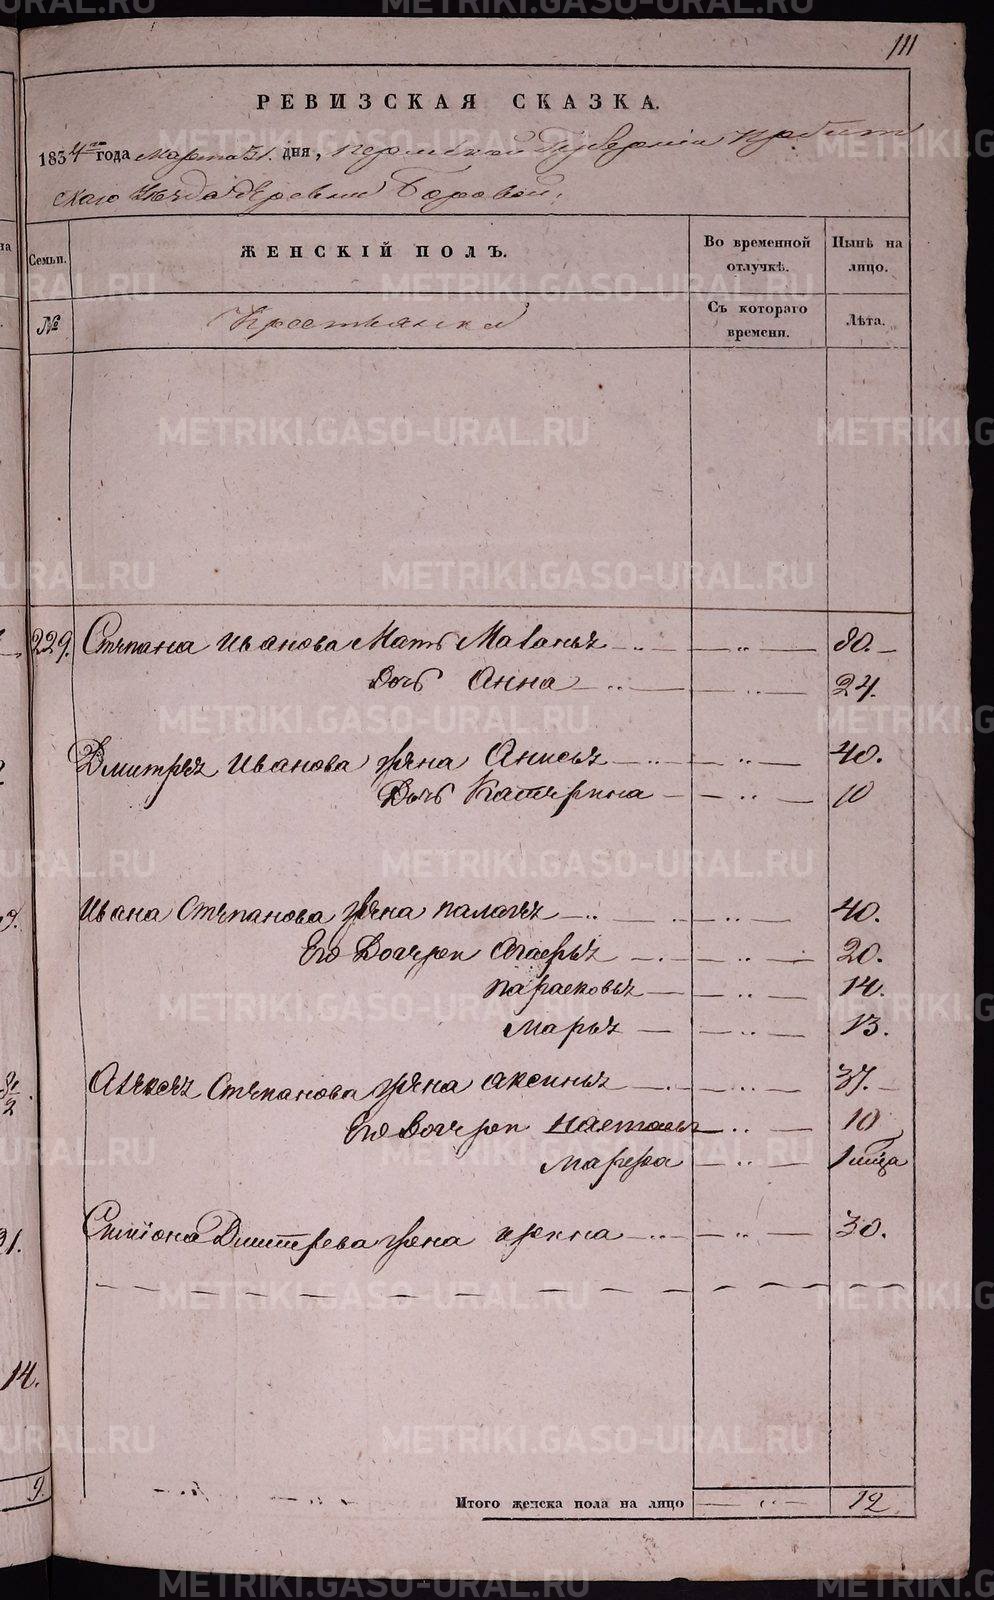 111
РЕВИЗСКАЯ СКАЗКА.
1834го года Марта 31. дня, Пермской Губернии Ирбит
скаго Уезда деревни Боровой,
Семьи.
ЖЕНСКІЙ ПОЛЪ.
Во временной отлучкѣ.
Нынѣ на лицо.
№
Крестьянки
Съ котораго времени.
Лѣта.
229. Степана Иванова Мать Маланья 80.
Дочь Анна 24.
Дмитрея Иванова жена Анисья 40.
Дочь Катерина 10
Ивана Степанова жена палагея 40.
Его Дочери Агафья 20.
парасковья 14.
Марья 13.
Алексея Степанова жена аксинья 37.
Его Дочери настасья 10
Марфа 1
Симиона Дмитрева жена ирина 30.
14.
9.
Итого женска пола на лицо 12
METRIKI.GASO-URAL.RU